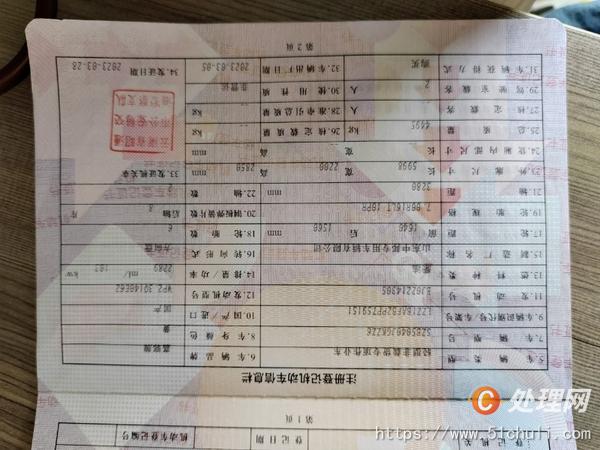 机动车登记编号
登记日期
登记机关
第1页
注册登记机动车信息栏
5.车辆类型 轻型非载货专项作业车 6.车辆品牌
7.车辆型号 8.车身颜色 黄
9.车辆识别代号/车架号 10.国产/进口 国产
11.发动机号 12.发动机型号
13.燃料种类 柴油 14.排量/功率 ml/ kw
15.制造厂名称 16.转向形式 方向盘
17.轮距 前 后 1560 mm 18.轮胎数 6
19.轮胎规格 7.00R16LT 10PR 20.钢板弹簧片数 后轴 片
21.轴距 3280 mm 22.轴数 2
23.外廓尺寸 长 5998 宽 2200 高 2850 mm 33.发证机关章
24.货厢内部尺寸 长 宽 高 mm
25.总质量 4495 kg 26.核定载质量 kg
27.核定载客 人 28.准牵引总质量 kg
29.驾驶室载客 2 人 30.使用性质 非营运
31.车辆获得方式 购买 32.车辆出厂日期 2023-03-05 34.发证日期 2023-03-28
第2页
云南省昭通
市公安局交
通警察支队
C 处理网
https://www.51chuli.com